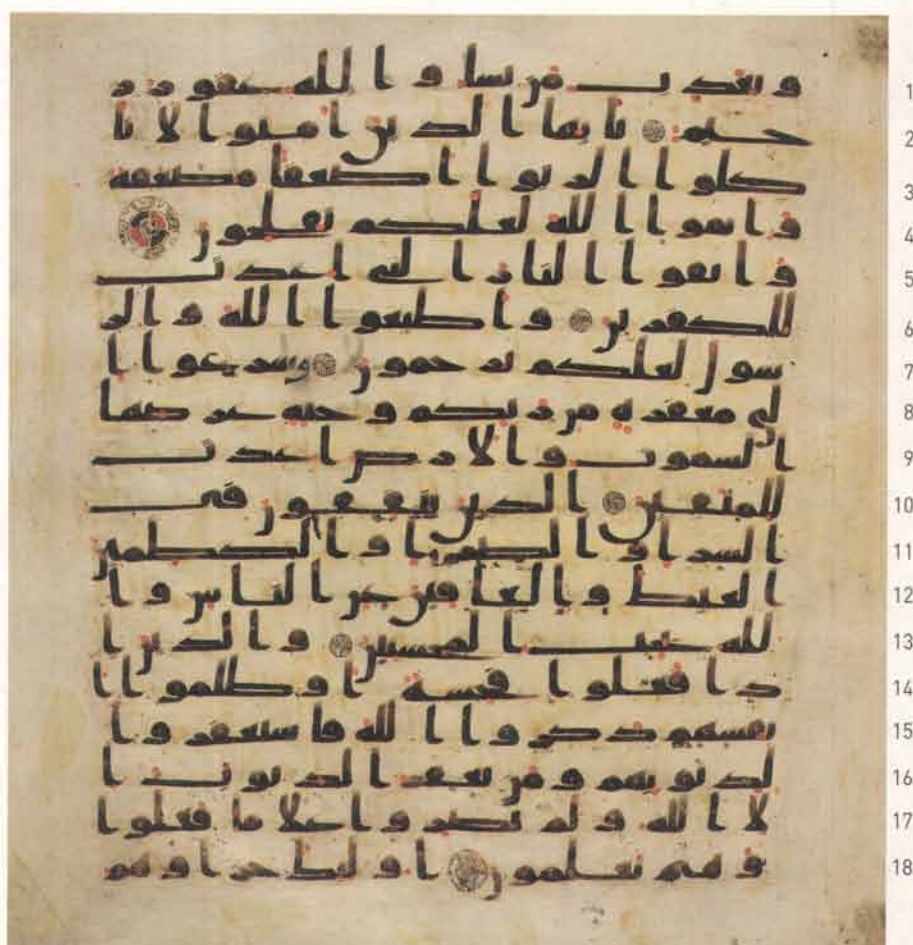 1 و يعذب من يشا و الله غفور ر
2 حيم يا يها الذين امنوا لا تا
3 كلوا الربوا اضعفا مضعفه
4 و اتقوا الله لعلكم تفلحون
5 و اتقوا النار التي اعدت
6 للكفرين و اطيعوا الله و الر
7 سول لعلكم ترحمون وسرعوا ا
8 لى مغفره من ربكم و جنه عرضها
9 السموت و الارض اعدت
10 للمتقين الذين ينفقون في
11 السرا و الضرا و الكظمين
12 الغيظ و العافين عن الناس و ا
13 لله يحب المحسنين و الذين ا
14 ذا فعلوا فحشة او ظلموا ا
15 نفسهم ذكروا الله فاستغفروا
16 لذنوبهم و من يغفر الذنوب ا
17 لا الله و لم يصروا على ما فعلوا
18 و هم يعلمون اوليك جزاوهم